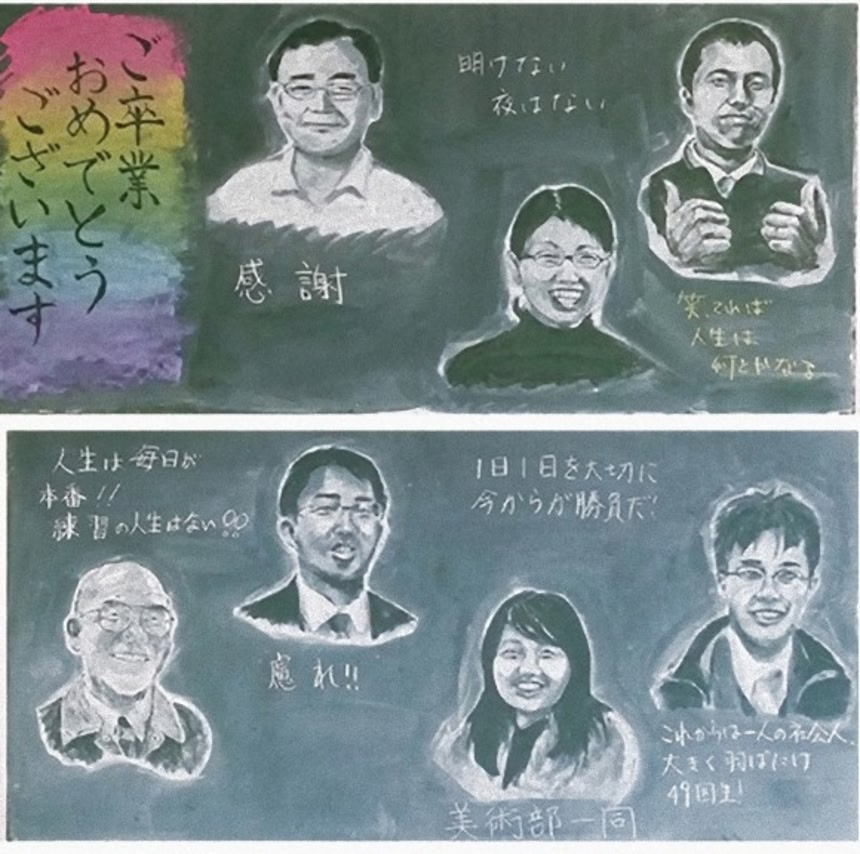 ご卒業
おめでとう
ございます
感謝
明けない
夜はない
笑ってれば
人生は
何とかなる
人生は毎日が
本番!!
練習の人生はない!!
慮れ!!
1日1日を大切に
今からが勝負だ!
これからは一人の社会人。
大きく羽ばたけ
49回生!
美術部一同